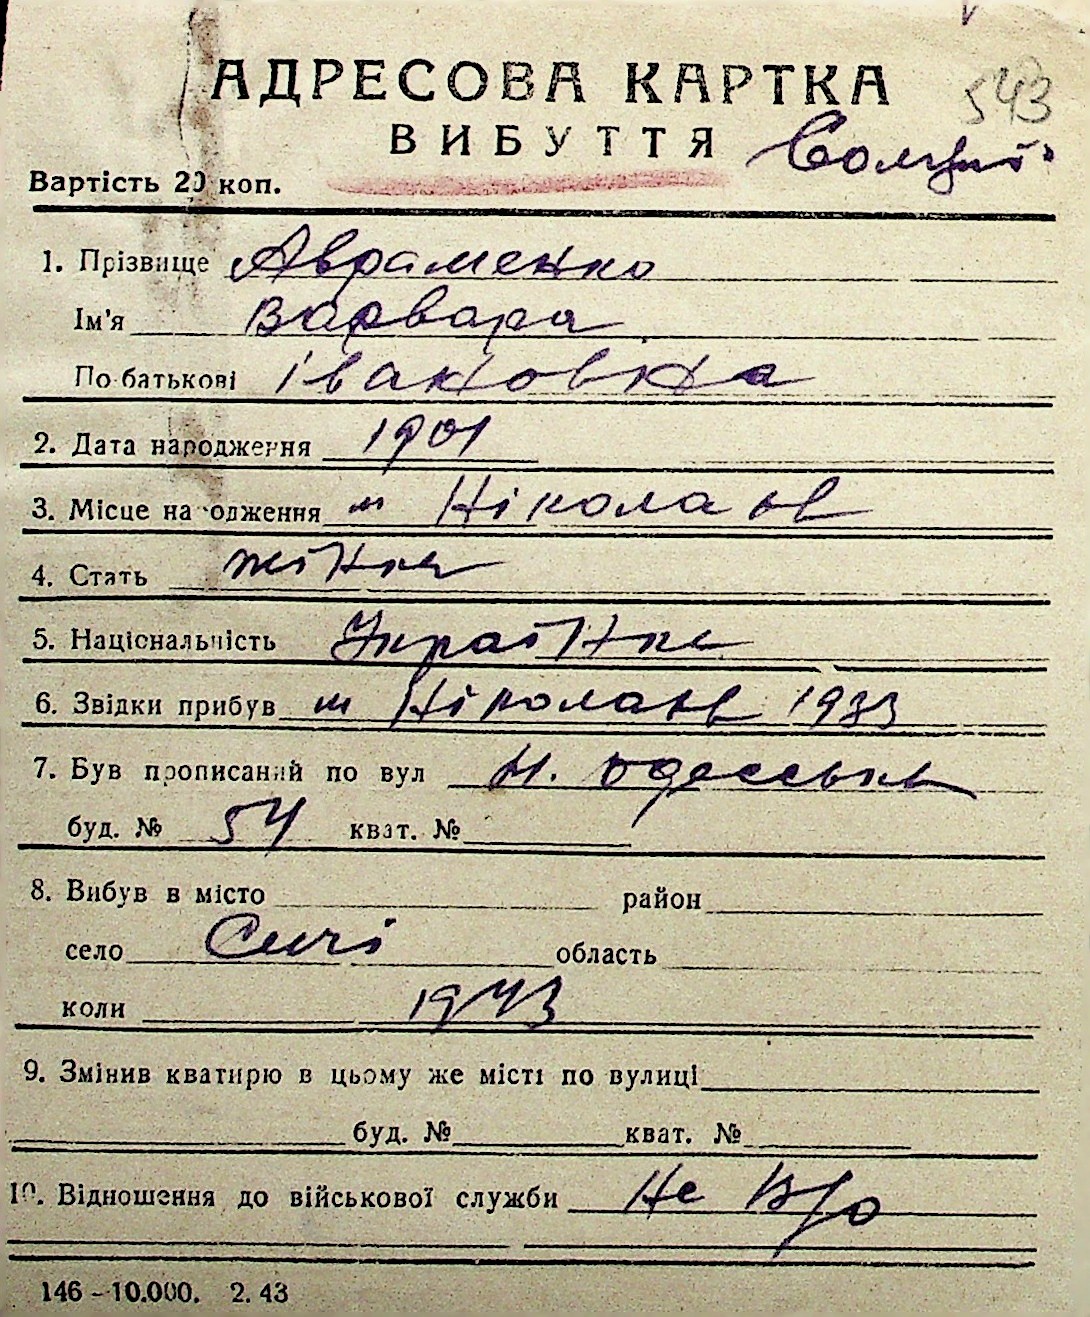 543
АДРЕСОВА КАРТКА
ВИБУТТЯ
Вартість 20 коп.
1. Прізвище Авраменко
Ім'я Варвара
По-батькові Івановна
2. Дата народження 1901
3. Місце народження м Ніколаєв
4. Стать жінка
5. Національність Українка
6. Звідки прибув м Ніколаєв 1933
7. Був прописаний по вул Н. Одесська
буд. № 54 кват. №
8. Вибув в місто район
село Січі область
коли 1943
9. Змінив квартирю в цьому же місті по вулиці
буд. № кват. №
10. Відношення до військової служби Не в/о
146 – 10.000. 2. 43